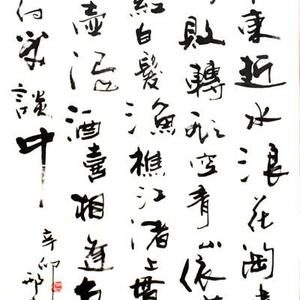 東逝水浪花淘
敗轉頭空青山依
紅白髮漁樵江渚上慣
壺濁酒喜相逢古
付笑談中
辛卯